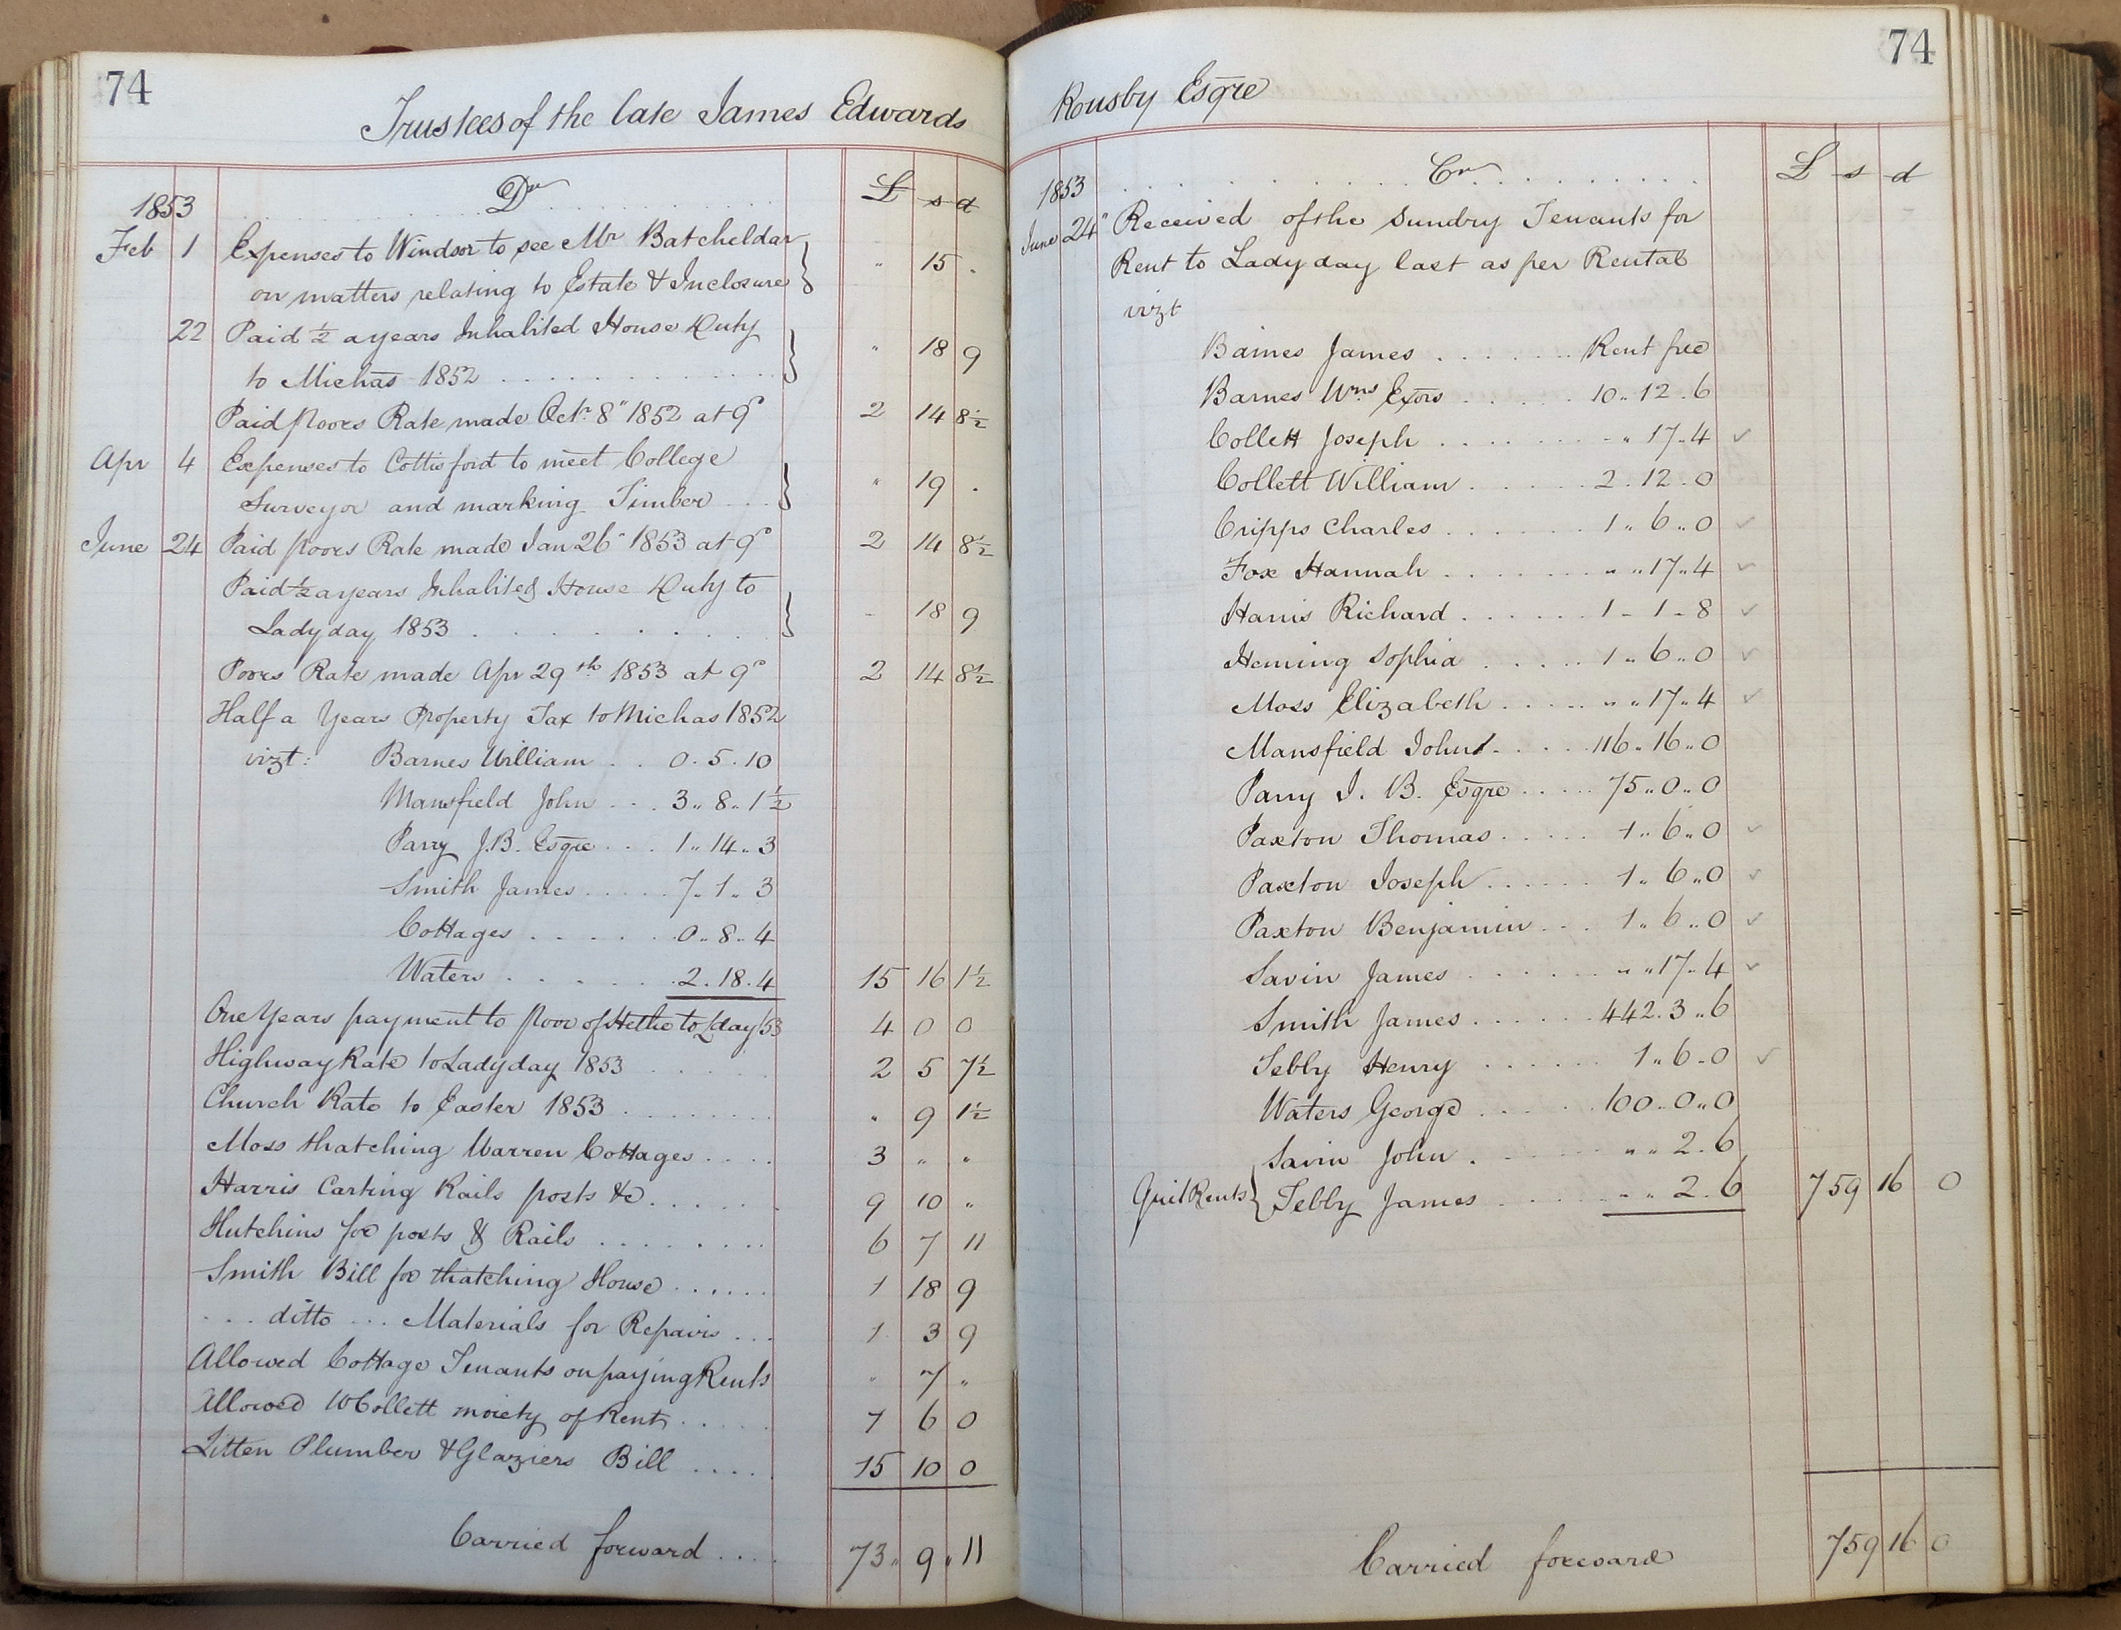 74
Trustees of the late James Edwards
Dr
£ s d
1853
Feb 1 Expenses to Windsor to see Mr Batcheldar
on matters relating to Estate & Inclosure " 15 .
22 Paid ½ a years Inhabited House Duty
to Michas 1852 " 18 9
Paid Poors Rate made Octr 8" 1852 at 9d 2 14 8½
Apr 4 Expenses to Cottisford to meet College
Surveyor and marking Timber " 19 .
June 24 Paid Poors Rate made Jan 26" 1853 at 9d 2 14 8½
Paid ½ a years Inhabited House Duty to
Ladyday 1853 - 18 9
Poors Rate made Apr 29th 1853 at 9d 2 14 8½
Half a Years Property Tax to Michas 1852
vizt: Barnes William . . 0. 5. 10
Mansfield John . . . 3.. 8.. 1½
Parry J.B. Esqre . . . 1.. 14.. 3
Smith James . . . . . 7. 1.. 3
Cottages . . . . . 0.. 8.. 4
Waters . . . . . . 2. 18. 4 15 16 1½
One Years payment to Poor of Hethe to Lday /53 4 0 0
Highway Rate to Ladyday 1853 2 5 7½
Church Rate to Easter 1853 " 9 1½
Moss thatching Warren Cottages 3 " "
Harris Carting Rails posts &c 9 10 "
Hutchins for posts & Rails 6 7 11
Smith Bill for thatching House 1 18 9
. . . ditto . . . Materials for Repairs 1 3 9
Allowed Cottage Tenants on paying Rents " 7 "
Allowed W Collett moiety of Rent 1 6 0
Litten Plumber & Glaziers Bill 15 10 0
Carried forward 73.. 9.. 11
74
Rousby Esqre
Cr
£ s d
1853
June 24" Received of the Sundry Tenants for
Rent to Ladyday last as per Rental
vizt
Baines James . . . . . . Rent free
Barnes Wms Exors . . . . . 10.. 12. 6
Collett Joseph . . . . . . - " 17.. 4 ✓
Collett William . . . . . 2. 12. 0
Cripps Charles . . . . . 1.. 6.. 0 ✓
Fox Hannah . . . . . . " " 17.. 4 ✓
Harris Richard . . . . . . 1 - 1 - 8 ✓
Heming Sophia . . . . . 1.. 6.. 0 ✓
Moss Elizabeth . . . . . " " 17.. 4 ✓
Mansfield John . . . . . 116.. 16.. 0
Parry J. B. Esqre . . . . . 75.. 0.. 0
Paxton Thomas . . . . . 1.. 6.. 0 ✓
Paxton Joseph . . . . . . 1.. 6.. 0 ✓
Paxton Benjamin . . . 1.. 6.. 0 ✓
Savin James . . . . . . " " 17.. 4 ✓
Smith James . . . . . . 442. 3.. 6
Tebby Henry . . . . . . 1.. 6.. 0 ✓
Waters George . . . . . 100.. 0.. 0
Savin John . . . . . . " " 2. 6
Quit Rents { Tebby James . . . . . " " 2. 6 759 16 0
Carried forward 759 16 0